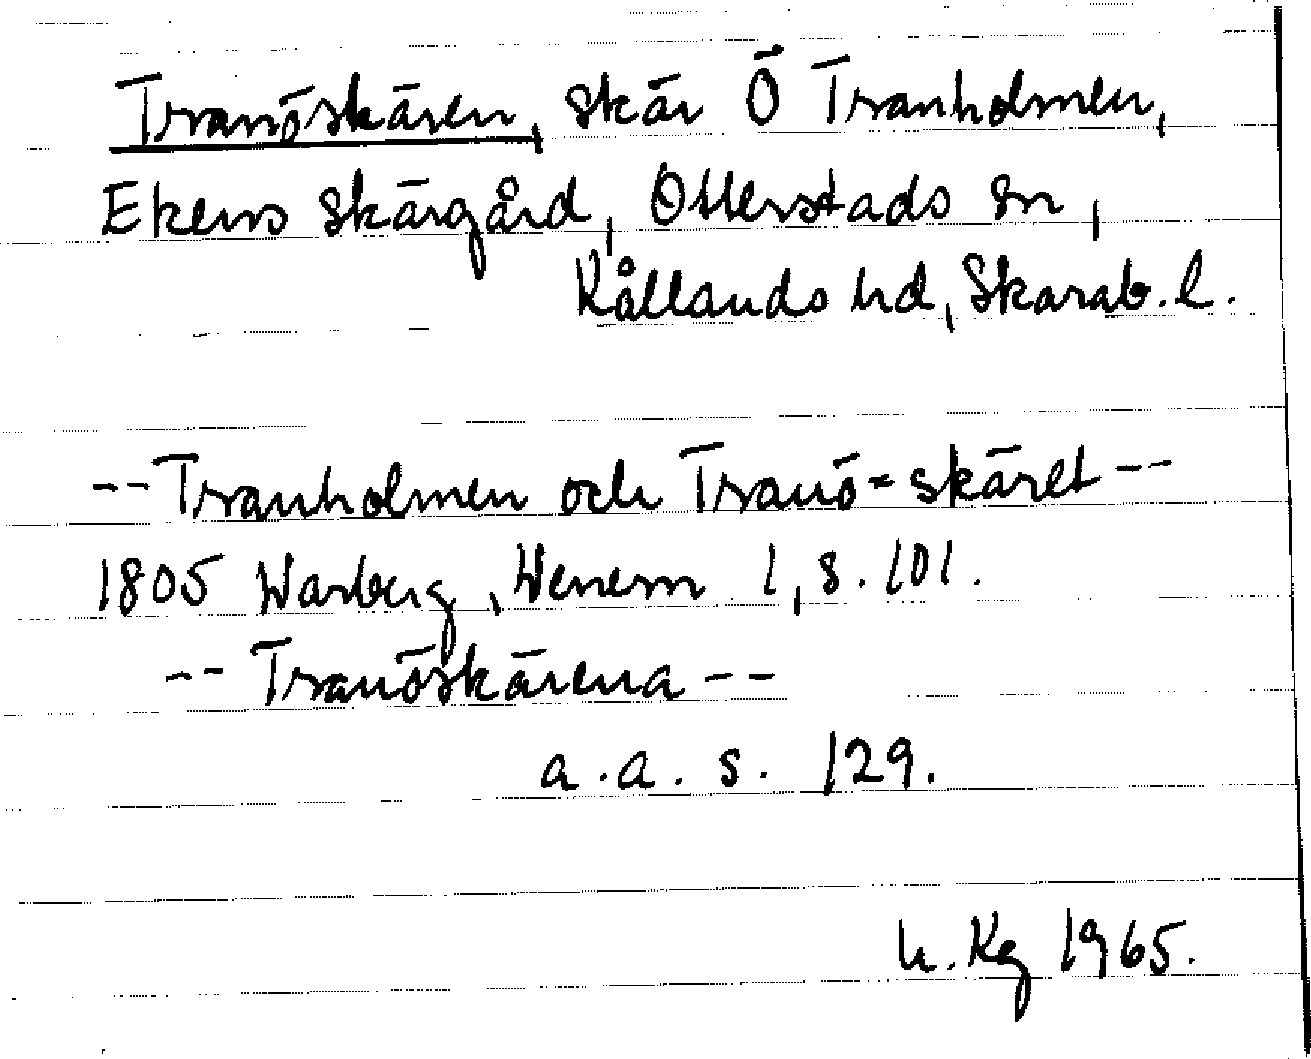 Tranöskären, skär Ö Tranholmen,
Ekens skärgård, Otterstads sn,
Kållands hd, Skarab. l.
-- Tranholmen och Tranö=skäret --
1805 Warberg, Wenern 1, s. 101.
-- Tranöskärena --
a. a. s. 129.
h. Kg 1965.